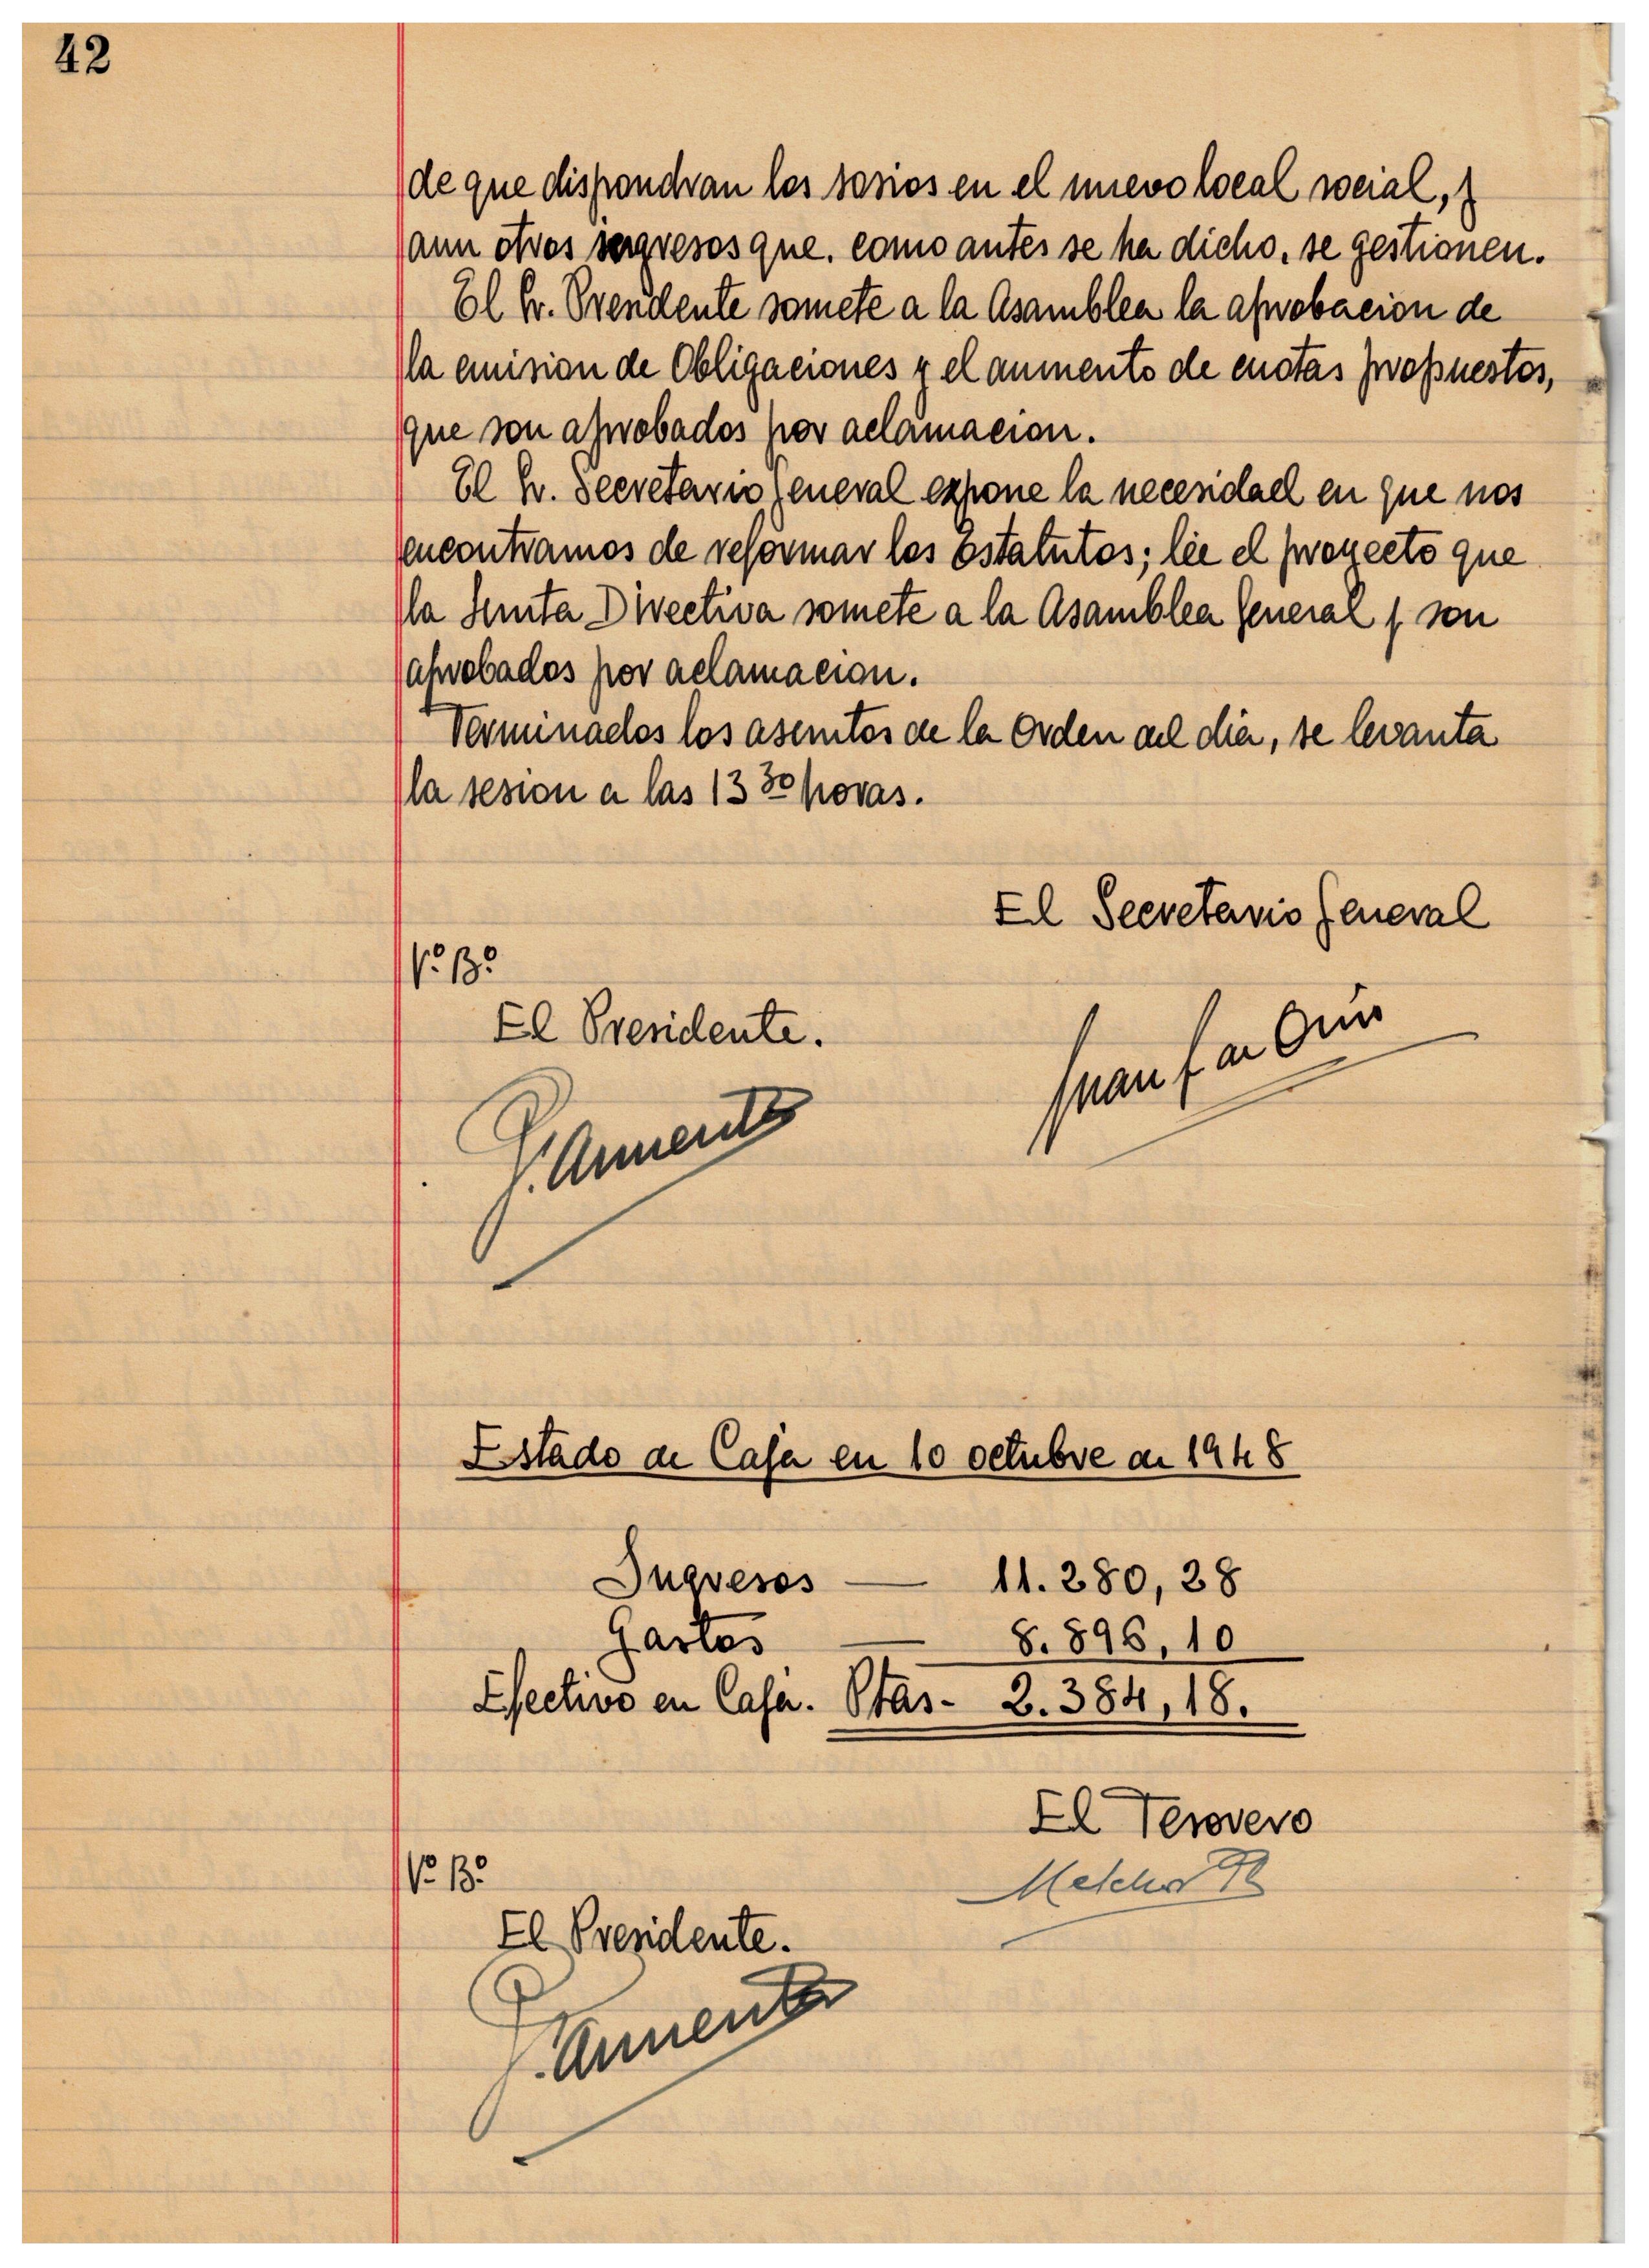 42
de que dispondran los socios en el nuevo local social, y
aun otros ingresos que. como antes se ha dicho, se gestionen.
El Sr. Presidente somete a la Asamblea la aprobacion de
la emision de Obligaciones y el aumento de cuotas propuestos,
que son aprobados por aclamacion.
El Sr. Secretario General expone la necesidad en que nos
encontramos de reformar los Estatutos; lée el proyecto que
la Junta Directiva somete a la Asamblea General y son
aprobados por aclamacion.
Terminados los asuntos de la Orden del dia, se levanta
la sesion a las 13 30 horas.
El Secretario General
Vº Bº
El Presidente.
Juan
P. Armenta
Estado de Caja en 10 octubre de 1948
Ingresos — 11.280,28
Gastos — 8.896,10
Efectivo en Caja. Ptas- 2.384,18.
El Tesorero
Vº Bº
Melchor
El Presidente.
P. Armenta